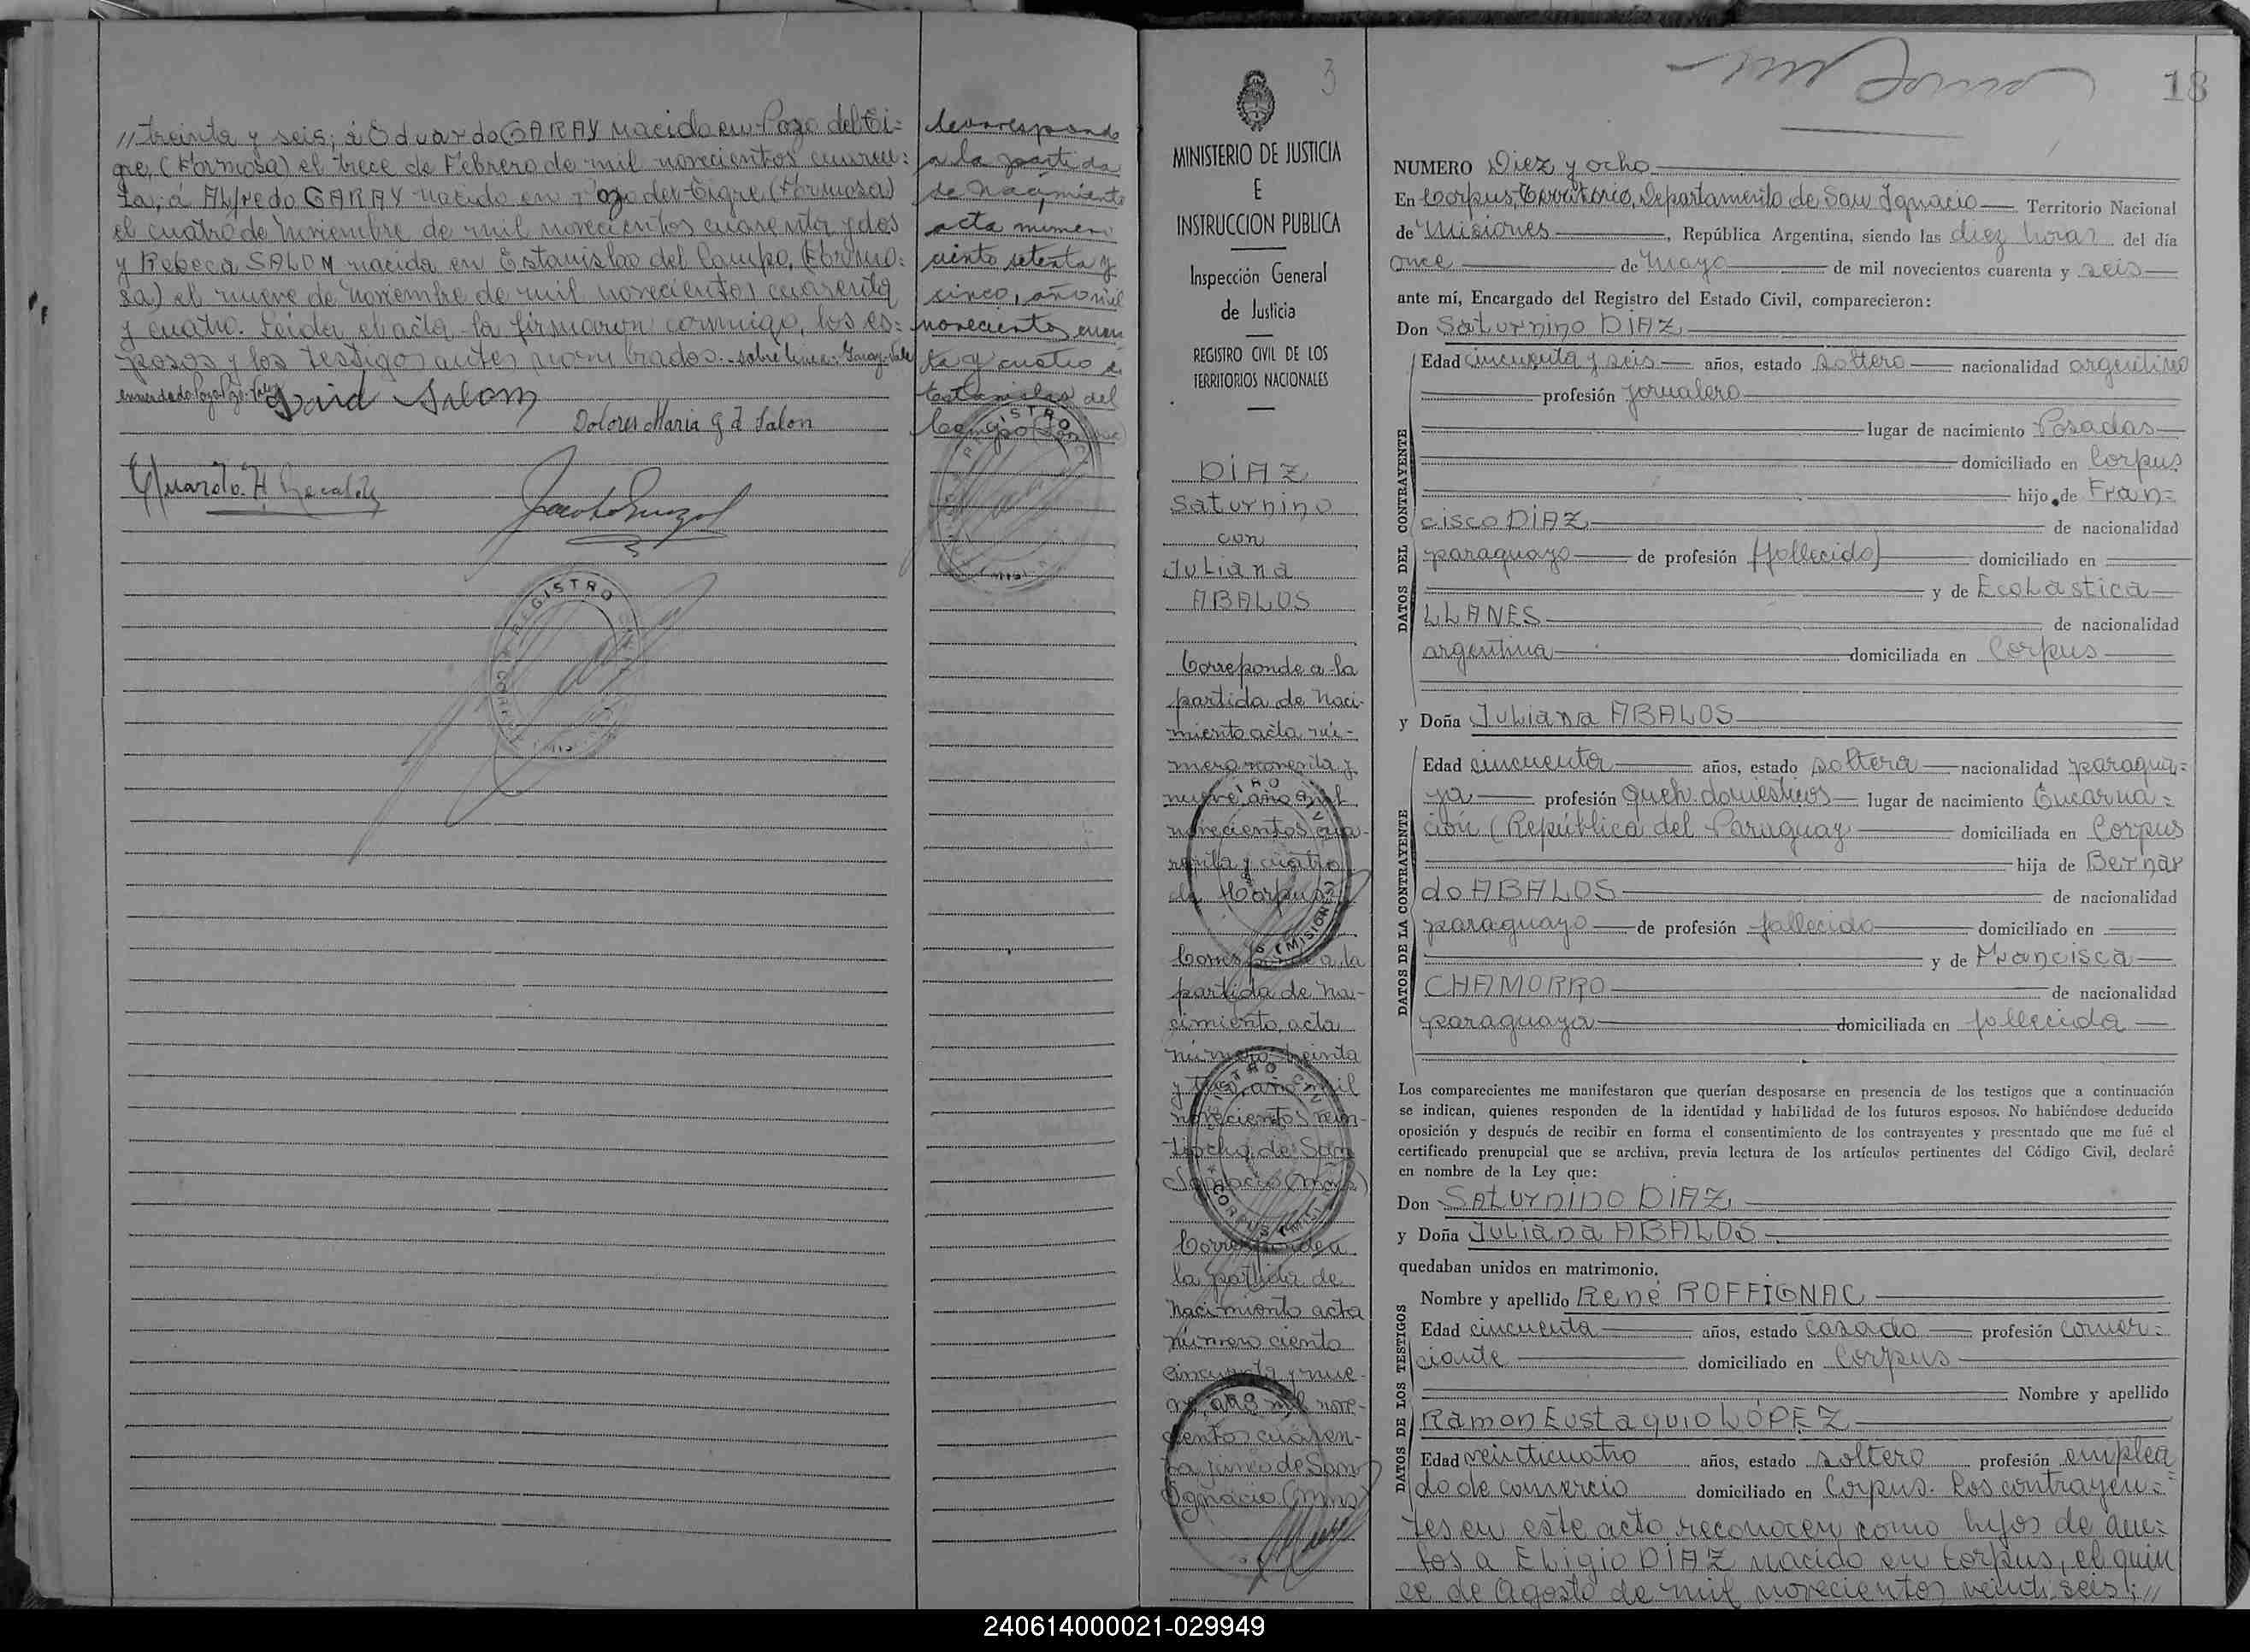 // treinta y seis; á Eduardo GARAY nacido en Pozo del Ti=
gre, (Formosa) el trece de Febrero de mil novecientos cuaren:
ta; á Alfredo GARAY nacido en Pozo del Tigre (Formosa)
el cuatro de Noviembre de mil novecientos cuarenta y dos
y Rebeca SALOM nacida en Estanislao del Campo, (Formo:
sa) el nueve de Noviembre de mil novecientos cuarenta
y cuatro. Leida el acta la firmaron conmigo, los es=
posos y los testigos antes nombrados. sobre linea: Garay-Vale
enmendado: Pozo. Vale
David Salom
Dolores Maria G d Salon
corresponde
a la partida
de Nacimiento
acta numero
ciento setenta y
cinco, año mil
novecientos cuaren
ta y cuatro de
Estanislao del
Campo
REGISTRO
REGISTRO
3
MINISTERIO DE JUSTICIA
E
INSTRUCCION PUBLICA
Inspección General
de Justicia
REGISTRO CIVIL DE LOS
TERRITORIOS NACIONALES
DIAZ
Saturnino
con
Juliana
ABALOS
Correponde a la
partida de Naci-
miento acta nú-
mero noventa y
nueve año mil
novecientos cua-
renta y cuatro
de Corpus
Corresponde a la
partida de Na-
cimiento, acta
número treinta
y tres, año mil
novecientos vein-
tiocho, de San
Ignacio (Mnes)
Corresponde a
la partida de
Nacimiento acta
número ciento
cincuenta y nue-
ve, año mil nove-
cientos cuaren-
ta y cinco de San
Ignacio (Mnes)
18
NUMERO Diez y ocho
En Corpus, Territorio, Departamento de San Ignacio Territorio Nacional
de Misiones, República Argentina, siendo las diez horas del día
once de Mayo de mil novecientos cuarenta y seis
ante mí, Encargado del Registro del Estado Civil, comparecieron:
Don Saturnino DIAZ
DATOS DEL CONTRAYENTE
Edad cincuenta y seis años, estado soltero nacionalidad argentino
profesión jornalero
lugar de nacimiento Posadas
domiciliado en Corpus
hijo de Fran=
cisco DIAZ de nacionalidad
paraguayo de profesión (fallecido) domiciliado en
y de Ecolastica
LLANES de nacionalidad
argentina domiciliada en Corpus
y Doña Juliana ABALOS
DATOS DE LA CONTRAYENTE
Edad cincuenta años, estado soltera nacionalidad paragua=
ya profesión Queh. domésticos lugar de nacimiento Encarna=
ción (República del Paraguay domiciliada en Corpus
hija de Bernar
do ABALOS de nacionalidad
paraguayo de profesión fallecido domiciliado en
y de Francisca
CHAMORRO de nacionalidad
paraguaya domiciliada en fallecida
Los comparecientes me manifestaron que querían desposarse en presencia de los testigos que a continuación
se indican, quienes responden de la identidad y habilidad de los futuros esposos. No habiéndose deducido
oposición y después de recibir en forma el consentimiento de los contrayentes y presentado que me fué el
certificado prenupcial que se archiva, previa lectura de los artículos pertinentes del Código Civil, declaré
en nombre de la Ley que:
Don Saturnino DIAZ
y Doña Juliana ABALOS
quedaban unidos en matrimonio.
DATOS DE LOS TESTIGOS
Nombre y apellido René ROFFIGNAC
Edad cincuenta años, estado casado profesión comer=
ciante domiciliado en Corpus
Nombre y apellido
Ramon Eustaquio LÓPEZ
Edad veinticuatro años, estado soltero profesión emplea
do de comercio domiciliado en Corpus. Los contrayen=
tes en este acto reconocen como hijos de am=
bos a Eligio DIAZ nacido en Corpus, el quin
ce de Agosto de mil novecientos veinti seis; //
240614000021-029949